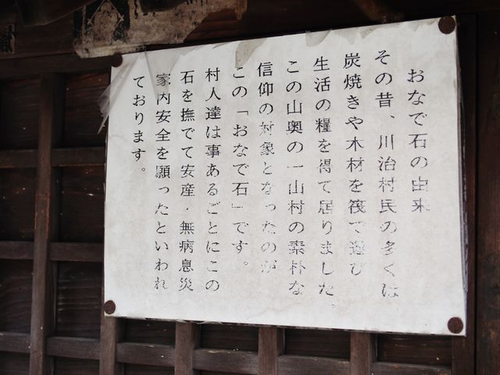 おなで石の由来
その昔、川治村民の多くは
炭焼きや木材を筏で運び
生活の糧を得て居りました。
この山奥の一山村の素朴な
信仰の対象となったのが
この「おなで石」です。
村人達は事あるごとにこの
石を撫でて安産・無病息災
家内安全を願ったといわれ
ております。